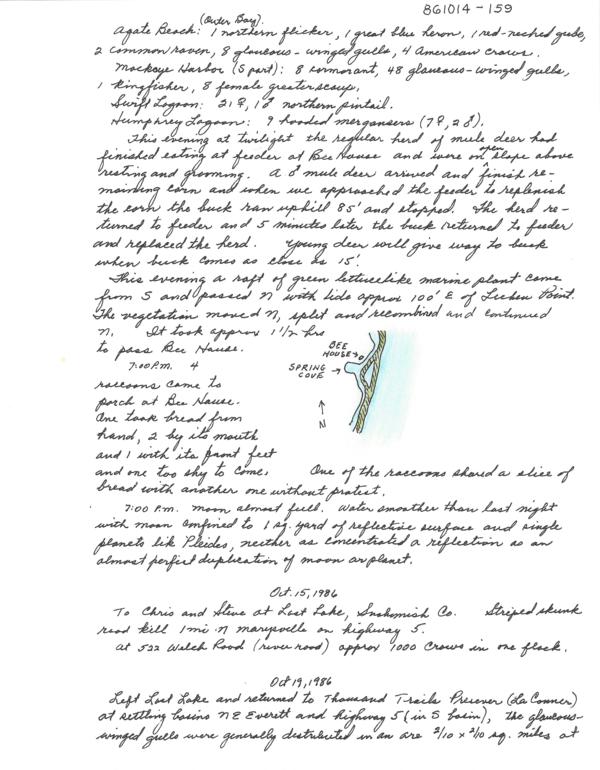 861014-159
(Outer Bay)
Agate Beach: 1 northern flicker, 1 great blue heron, 1 red-necked grebe,
2 common raven, 8 glaucous-winged gulls, 4 American crows.
Mackaye Harbor (S part): 8 cormorant, 48 glaucous-winged gulls,
1 kingfisher, 8 female greater scaup.
Swift Lagoon: 21♀, 1♂ northern pintail.
Humphrey Lagoon: 9 hooded mergansers (7♀, 2♂).
This evening at twilight the regular herd of mule deer had
finished eating at feeder at Bee House and were on open slope above
resting and grooming. A ♂ mule deer arrived and finish re-
maining corn and when we approached the feeder to replenish
the corn the buck ran uphill 85' and stopped. The herd re-
turned to feeder and 5 minutes later the buck returned to feeder
and replaced the herd. Young deer will give way to buck
when buck comes as close as 15'.
This evening a raft of green lettucelike marine plant came
from S and passed N with tide approx 100' E of Point.
The vegetation moved N, split and recombined and continued
N. It took approx 1 1/2 hrs
to pass Bee House.
BEE
HOUSE
SPRING
COVE
N
7:00 P.M. 4
raccoons came to
porch at Bee House.
One took bread from
hand, 2 by its mouth
and 1 with its front feet
and one too shy to come. One of the raccoons shared a slice of
bread with another one without protest.
7:00 P.M. moon almost full. Water smoother than last night
with moon confined to 1 sq. yard of reflective surface and single
planets like Pleides, neither as concentrated a reflection as an
almost perfect duplication of moon or planet.
Oct. 15, 1986
To Chris and Steve at Lost Lake, Snohomish Co. Striped skunk
road kill 1 mi N marysville on highway 5.
at 522 Welch Road (river road) approx 1000 Crows in one flock.
Oct 19, 1986
Left Lost Lake and returned to Thousand Trails Preserver (La Conner)
at settling basins NE Everett and highway 5 (in S basin), the glaucous-
winged gulls were generally distributed in an are 2/10 x 2/10 sq. miles at